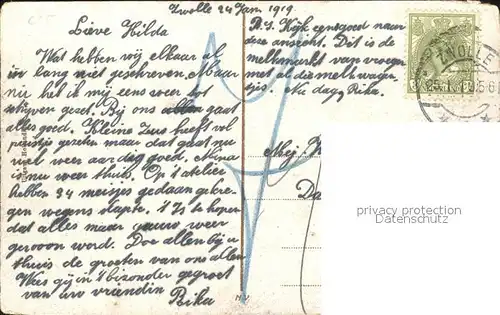 Zwolle 24 Jan 1919
Lieve Hilda
Wat hebben wij elkaar al
in lang niet geschreven. Maar
nu heb ik mij eens weer tot
schrijven gezet. Bij ons allen gaat
alles goed. Kleine Zus heeft vol
puistjes gezeten maar dat gaat nu
wel weer aardig goed. Mina
is nu weer thuis. Op 't atelier
hebben 34 meisjes gedaan gekre-
gen wegens slapte. 't Is te hopen
dat alles maar gauw weer
gewoon word. Doe allen bij u
thuis de groeten van ons allen
Wees gij in 't bizonder gegroet
van uw vriendin
Rika
P.S. Kijk eens goed naar
deze ansicht. Dit is de
melkmarkt van vroeger
met de melkwagen-
tjes. Nu dag Rika.
Mej
ZWOLLE
privacy protection
DELCAMPE SERVICES